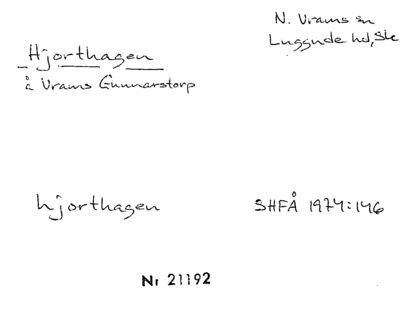 Hjorthagen
å Vrams Gunnarstorp
N. Vrams sn
Luggude hd, Sk
hjorthagen
SHFÅ 1974:146
Nr 21192